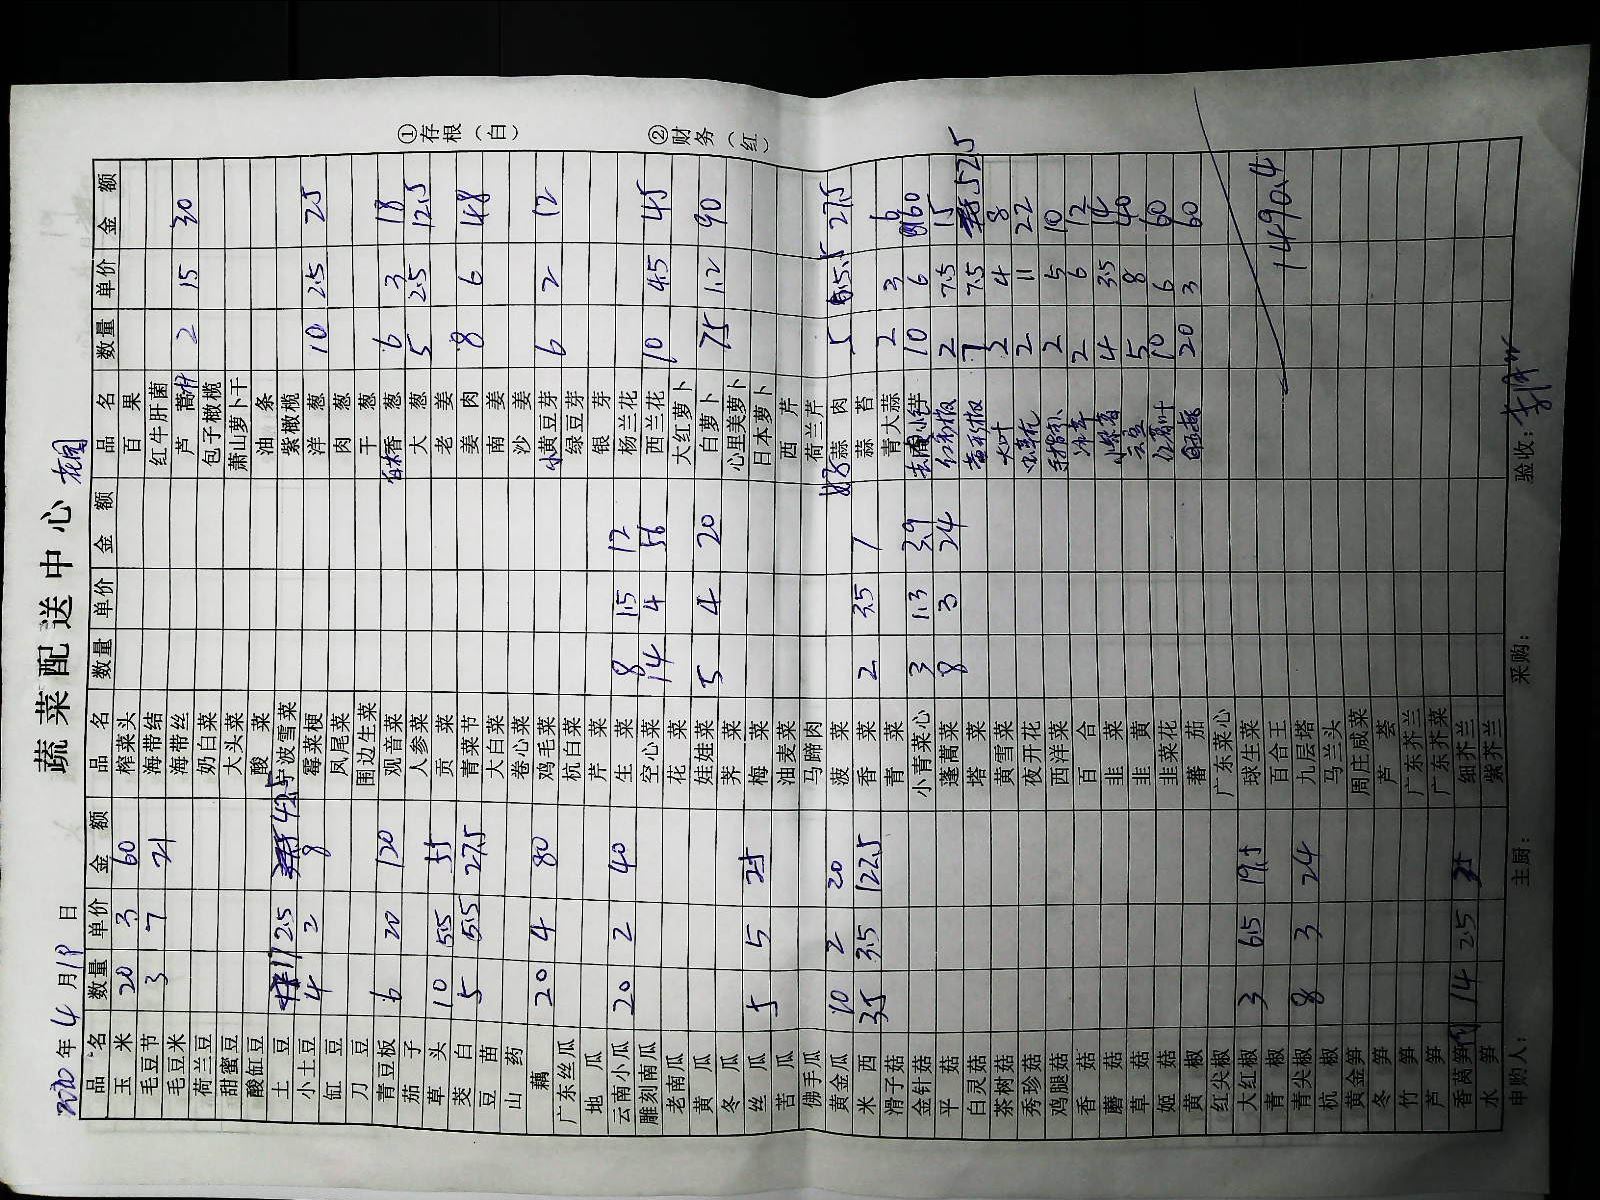 蔬菜配送中心 花园
2020年4月18日
品名 数量 单价 金额 品名 数量 单价 金额 品名 数量 单价 金额
玉米 20 3 60 榨菜头 百果
毛豆节 3 7 21 海带结 红牛肝菌
毛豆米 海带丝 芦蒿 2 15 30
荷兰豆 奶白菜 包子橄榄
甜蜜豆 大头菜 萧山萝卜干
酸缸豆 酸菜 油条
土豆 17 2.5 42.5 宁波雪菜 紫橄榄
小土豆 4 2 8 霉菜梗 洋葱 10 2.5 25
缸豆 凤尾菜 肉葱
刀豆 围边生菜 干葱
青豆板 6 20 120 观音菜 香葱 6 3 18
茄子 人参菜 大葱 5 2.5 12.5
草头 10 5.5 55 贡菜 老姜
茭白 5 5.5 27.5 青菜节 姜肉 8 6 48
豆苗 大白菜 南姜
山药 卷心菜 沙姜
藕 20 4 80 鸡毛菜 小黄豆芽 6 2 12
广东丝瓜 杭白菜 绿豆芽
地瓜 芹菜 银芽
云南小瓜 20 2 40 生菜 8 1.5 12 杨兰花
雕刻南瓜 空心菜 14 4 56 西兰花 10 4.5 45
老南瓜 花菜 大红萝卜
黄瓜 娃娃菜 5 4 20 白萝卜 75 1.2 90
冬瓜 荠菜 心里美萝卜
丝瓜 5 5 25 梅菜 日本萝卜
苦瓜 油麦菜 西芹
佛手瓜 马蹄肉 荷兰芹
黄金瓜 10 2 20 菠菜 蒜肉 5 5.5 27.5
米西 35 3.5 122.5 香菜 2 3.5 7 蒜苔
滑子菇 青菜 青大蒜 2 3 6
金针菇 小青菜心 3 1.3 3.9 10 6 60
平菇 蓬蒿菜 8 3 24 红秀椒 2 7.5 15
白灵菇 塔菜 黄秀椒 7 7.5 52.5
茶树菇 黄雪菜 大叶 2 4 8
秀珍菇 夜开花 2 11 22
鸡腿菇 西洋菜 2 5 10
香菇 百合 2 6 12
蘑菇 韭菜 4 3.5 14
草菇 韭黄 5 8 40
姬菇 韭菜花 10 6 60
黄椒 蕃茄 20 3 60
红尖椒 广东菜心
大红椒 3 6.5 19.5 球生菜
青椒 百合王 1490.4
青尖椒 8 3 24 九层塔
杭椒 马兰头
黄金笋 周庄咸菜
冬笋 芦荟
竹笋 广东芥兰
芦笋 广东芥菜
香莴笋 14 2.5 35 细芥兰
水笋 紫芥兰
申购人： 主厨： 采购： 验收：
①存根（白）
②财务（红）